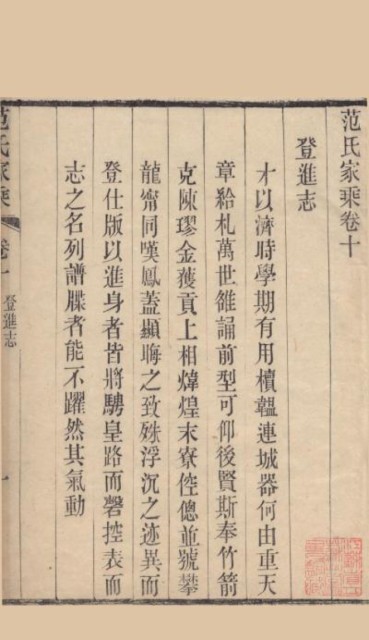 范氏家乘卷十
登進志
才以濟時學期有用櫝韞連城器何由重天
章給札萬世雒誦前型可仰後賢斯奉竹箭
克陳璆金獲貢上相煒煌末寮倥傯並號攀
龍甯同嘆鳳蓋顯晦之致殊浮沉之迹異而
登仕版以進身者皆將騁皇路而磬控表而
志之名列譜牒者能不躍然其氣動
范氏家乘
卷十
登進志
一